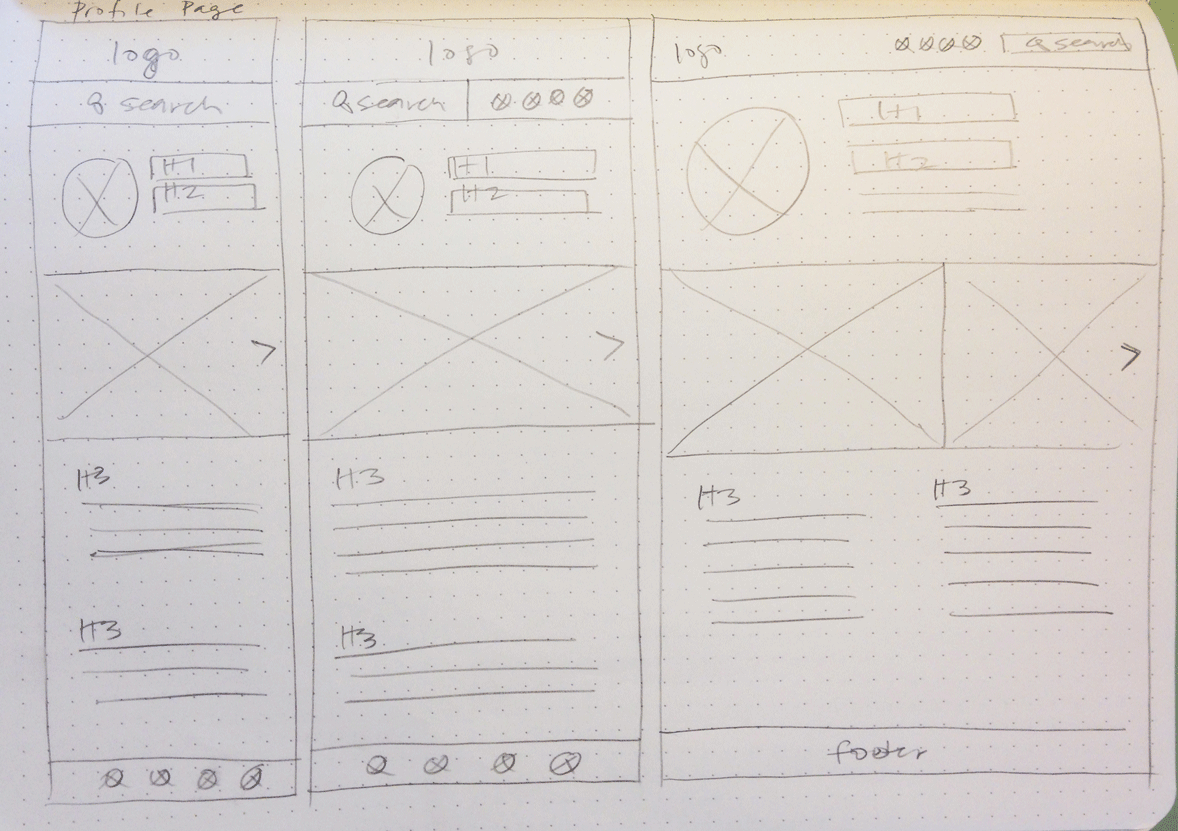 Profile Page
logo
search
H1
H2
H3
H3
logo
search
H1
H2
H3
H3
logo
search
H1
H2
H3
H3
footer